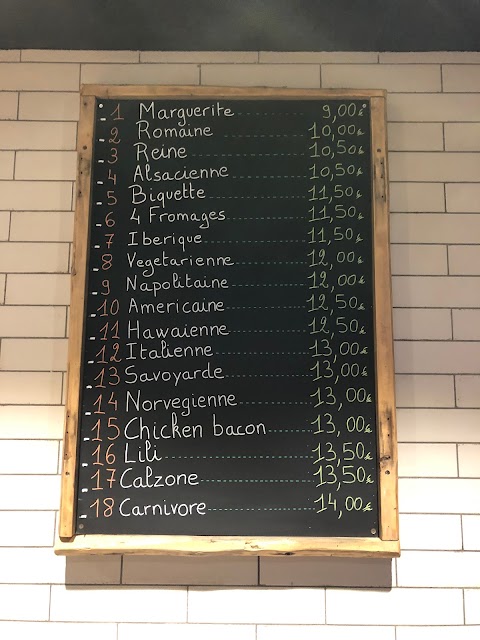 - 1 Marguerite 9,00€
- 2 Romaine 10,00€
- 3 Reine 10,50€
- 4 Alsacienne 10,50€
- 5 Biquette 11,50€
- 6 4 Fromages 11,50€
- 7 Iberique 11,50€
- 8 Vegetarienne 12,00€
- 9 Napolitaine 12,00€
- 10 Americaine 12,50€
- 11 Hawaienne 12,50€
- 12 Italienne 13,00€
- 13 Savoyarde 13,00€
- 14 Norvegienne 13,00€
- 15 Chicken bacon 13,00€
- 16 Lili 13,50€
- 17 Calzone 13,50€
- 18 Carnivore 14,00€